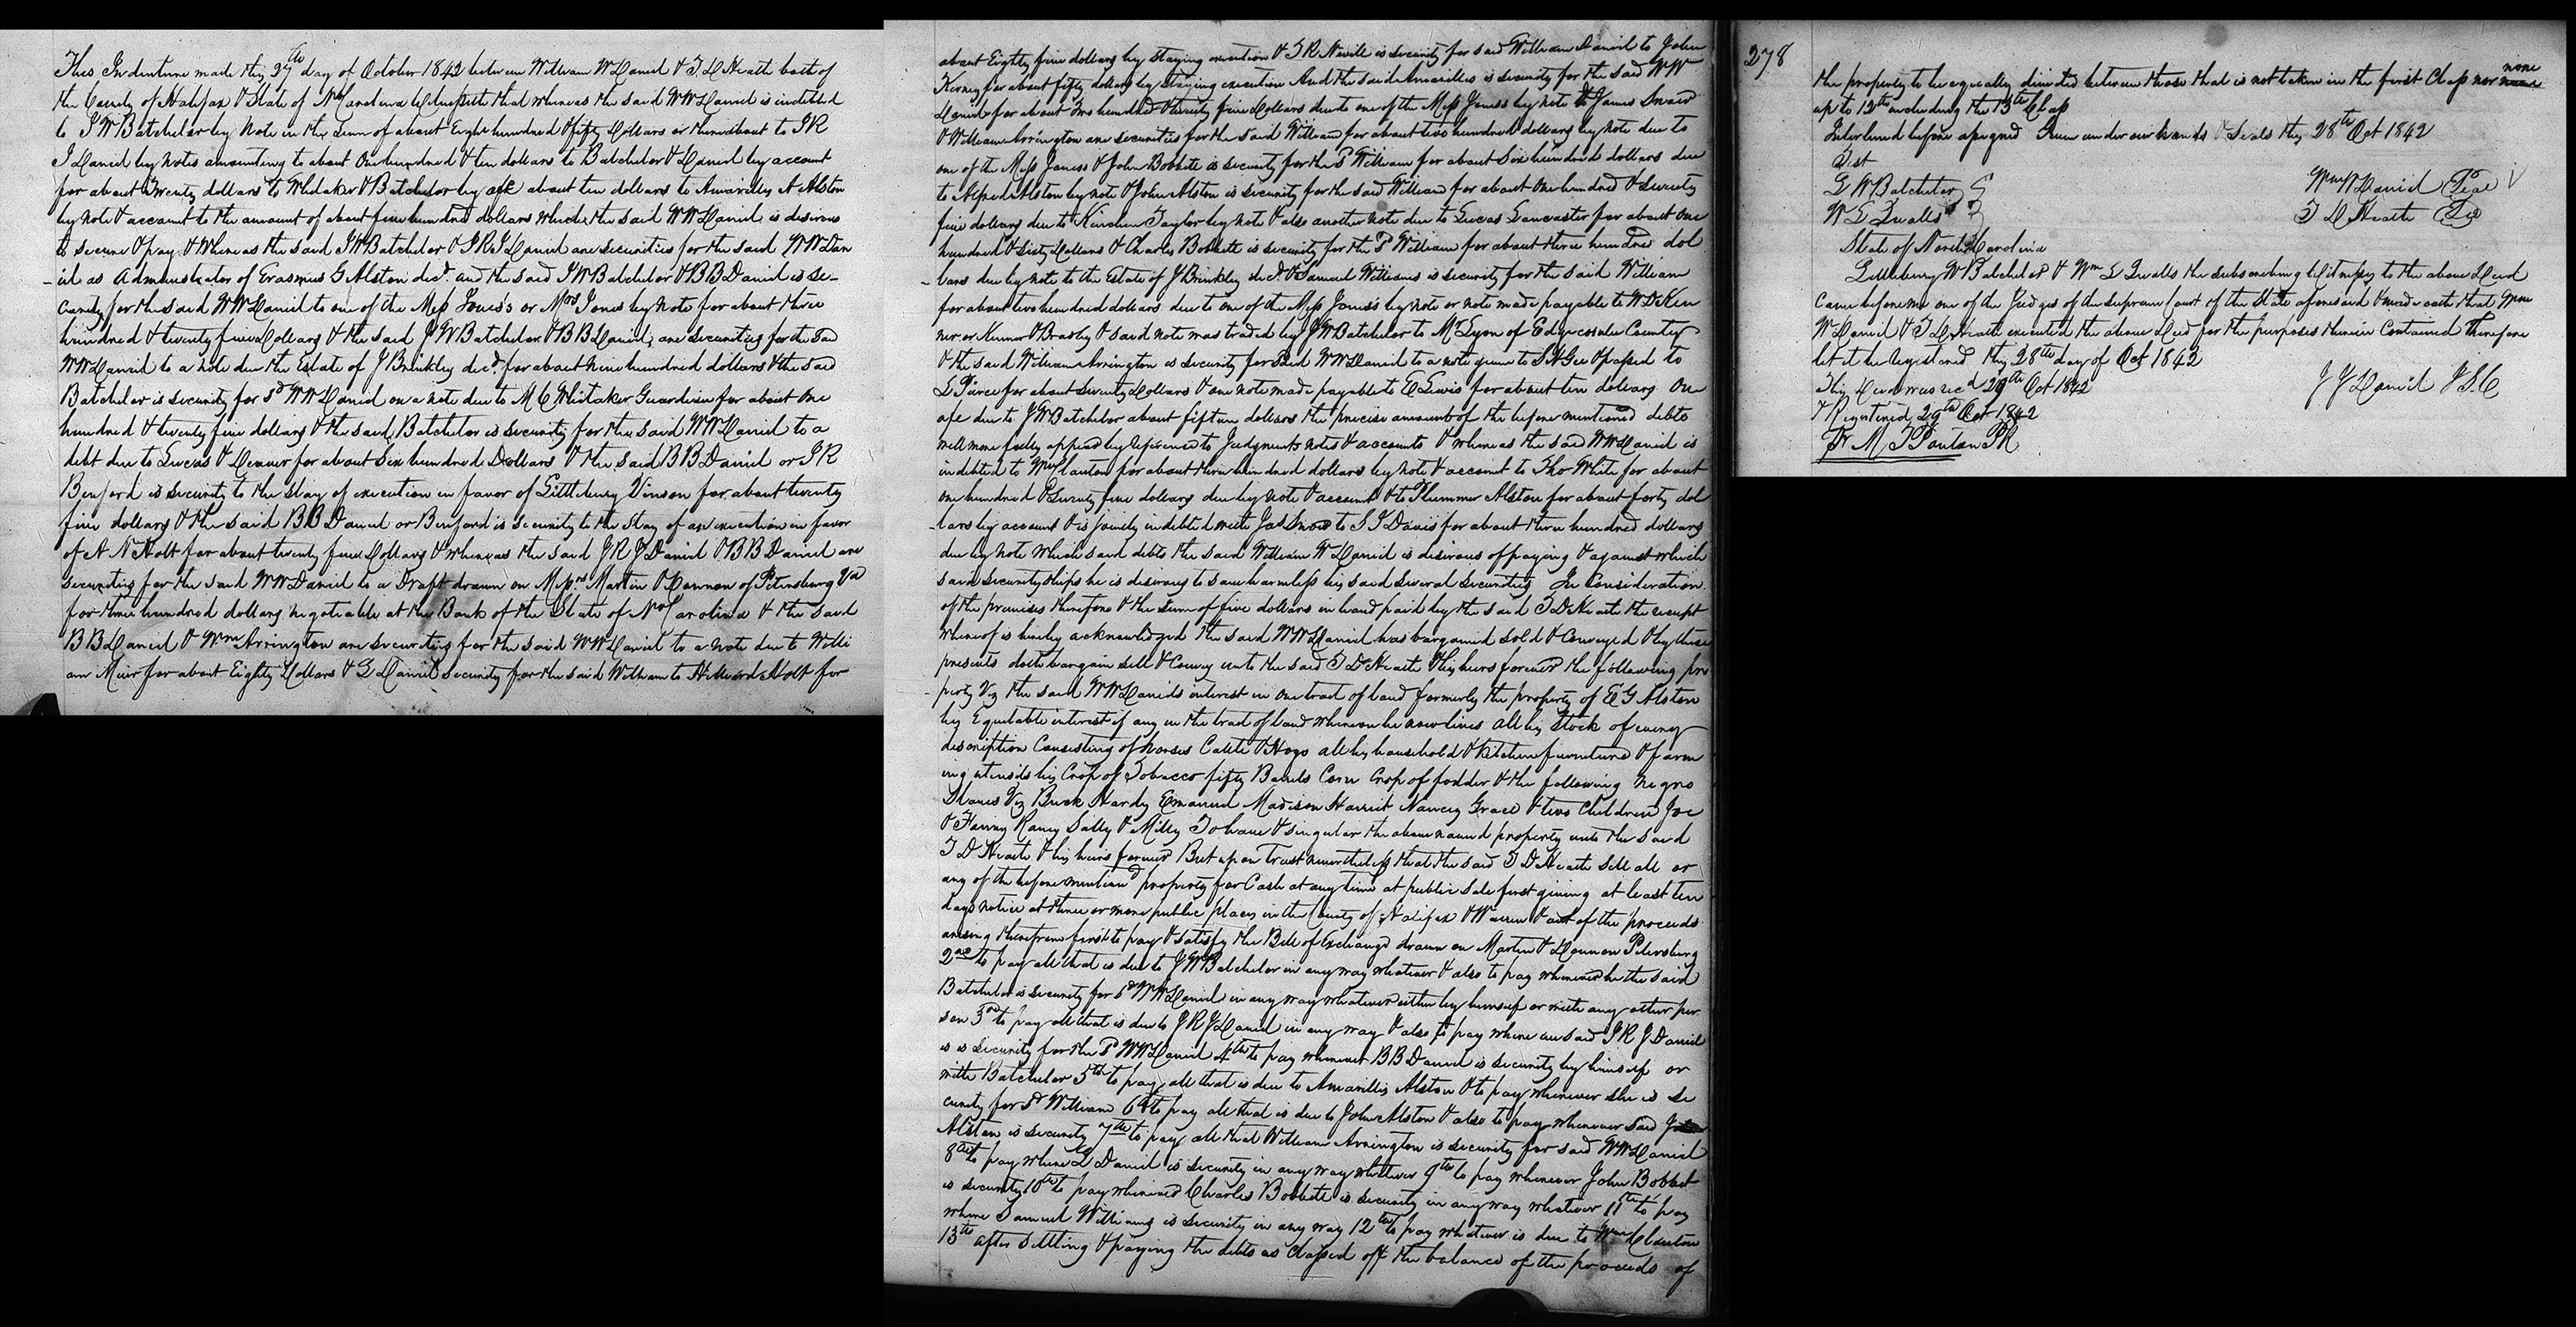 This Indenture made this 27th day of October 1842 between William W Daniel & T. D Heath both of
the County of Halifax & State of No Carolina Witnesseth that whereas the said W W Daniel is indebted
to J W Batchelor by Note in the sum of about Eight hundred & fifty Dollars or thereabout to J R
J Daniel by notes amounting to about One hundred & ten dollars to Batchelor & Daniel by account
for about Twenty dollars to Whitaker & Batchelor by acpt about ten dollars to Amarilley A Alston
by note & account to the amount of about five hundred dollars which the said W W Daniel is desirous
to secure & pay & Whereas the said J W Batchelor & J. R. J Daniel are securities for the said W W Dan
iel as Administrator of Erasmus G Alston decd. and the said J W Batchelor & B B Daniel is se-
curity for the said W W Daniel to one of the Miss Jones's or Mrs Jones by note for about three
hundred & twenty five Dollars & the said J W Batchelor & B B Daniel are securities for the sad
W W Daniel to a note due the Estate of J Brinkley decd. for about nine hundred dollars & the said
Batchelor is security for sd W W Daniel on a note due to M C Whitaker Guardian for about One
hundred & twenty five dollars & the said Batchelor is security for the said W W Daniel to a
debt due to Lucas & for about Six hundred Dollars & the said B B Daniel or J R
Benford is security to the stay of execution in favor of Littlebury Vinson for about twenty
five dollars & the said B B Daniel or Benford is security to the stay of an execution in favor
of A N Holt for about twenty five Dollars & whereas the said J R J Daniel & B B Daniel are
securities for the said W W Daniel to a Draft drawn on Messrs Martin & Donnan of Petersburg Va
for three hundred dollars negotiable at the Bank of the State of No Carolina & the said
B B Daniel & Wm Arrington are securities for the said W W Daniel to a note due to Willi
am Muir for about Eighty Dollars & G Daniel security for the said William to Holt for
about Eighty five dollars by staying execution & T R Nevill is security for said William Daniel to John
for about fifty dollars by staying execution And the said Amarillis is security for the said W W
Daniel for about Two hundred & twenty five Dollars due to one of the Miss Jones's by note & James Snow
& William Arrington are securities for the said William for about two hundred dollars by note due to
one of the Miss Jones's & John Bobbitt is security for the sd William for about Six hundred dollars due
to Alfred Alston by note & John Alston is security for the said William for about One hundred & seventy
five dollars due to Kinchen Taylor by note & also another note due to Lucas Lancaster for about one
hundred & Sixty Dollars & Charles Bobbitt is security for the sd William for about three hundred dol
lars due by note to the Estate of J Brinkley decd. & Samuel Williams is security for the said William
for about two hundred dollars due to one of the Miss Jones's by note or note made payable to W D Kin
ner or Kinner & Brasby & said note was traded by J W Batchelor to Mr Lyon of Edgecombe County
& the said William Arrington is security for said W W Daniel to a note given to S H Gee & passed to
L Pierce for about seventy Dollars & one note made payable to E Lewis for about ten dollars One
apt due to J W Batchelor about fifteen dollars the precise amount of the before mentioned debts
will more fully appear by reference to Judgments notes & accounts & whereas the said W W Daniel is
indebted to Wm Clanton for about three hundred dollars by note & account to Tho White for about
one hundred & seventy five dollars due by note & account & to Plummer Alston for about forty dol
lars by account & is jointly indebted with Jas Snow to S J Davis for about three hundred dollars
due by note which said debts the said William W Daniel is desirous of paying & against which
said securityships he is desirous to save harmless his said several securities In Consideration
of the premises therefore & the sum of five dollars in hand paid by the said T D Heath the receipt
whereof is hereby acknowledged the said W W Daniel has bargained sold & Conveyed & by these
presents doth bargain sell & Convey unto the said T D Heath & his heirs forever the following pro
perty Viz the said W W Daniels interest in one tract of land formerly the property of E G Alston
his Equitable interest if any in the tract of land whereon he now lives All his stock of every
description Consisting of horses Cattle & Hogs all his household & kitchen furniture & farm
ing utensils his Crop of Tobacco fifty Barrels Corn Crop of fodder & the following negro
Slaves Viz Buck Hardy Emanuel Madison Harriet Nancy Grace & two Children Joe
& Fanny Raney Sally & Milly To have & singular the above named property unto the said
T D Heath & his heirs forever But upon Trust nevertheless that the said T D Heath sell all or
any of the before mentioned property for Cash at any time at public sale first giving at least ten
days notice at three or more public places in the County of Halifax & Warren & out of the proceeds
arising therefrom first to pay & satisfy the Bill of Exchange drawn on Martin & Donnan Petersburg
2nd to pay all that is due to J W Batchelor in any way whatever & also to pay whenever he the said
Batchelor is security for sd W W Daniel in any way whatever either by himself or with any other per
son 3rd to pay all that is due to J R J Daniel in any way & also to pay where ever said J R J Daniel
is security for the sd W W Daniel 4th to pay whenever B B Daniel is security by himself or
with Batchelor 5th to pay all that is due to Amarillis Alston & to pay whenever she is se
curity for sd William 6th to pay all that is due to John Alston & also to pay whenever said John
Alston is security 7th to pay all that William Arrington is security for said W W Daniel
8th to pay where G Daniel is security in any way whatever 9th to pay whenever John Bobbitt
is security 10th to pay whenever Charles Bobbitt is security in any way whatever 11th to pay
where Samuel Williams is security in any way 12th to pay whatever is due to Wm Clanton
13th after settling & paying the debts as classed off the balance of the proceeds of
278
the property to be equally divided between those that is not taken in the first Class nor none
up to 12th including the 13th Class
Interlined before assigned Given under our hands & Seals this 28th Oct 1842
Test
L W Batchelor
W L Qualls
Wm W Daniel Seal
T D Heath
State of North Carolina
Littlebury W Batchelor & Wm L Qualls the subscribing Witnesses to the above Deed
Came before me one of the Judges of the supreme Court of the State aforesaid & made oath that Wm
W Daniel & T D Heath executed the above Deed for the purposes therein Contained Therefore
let it be Registered this 28th day of Oct 1842
J J Daniel J. S. C
This Deed was recd 29th Oct 1842
& Registered 29th Oct 1842
Pr M T Ponton PR